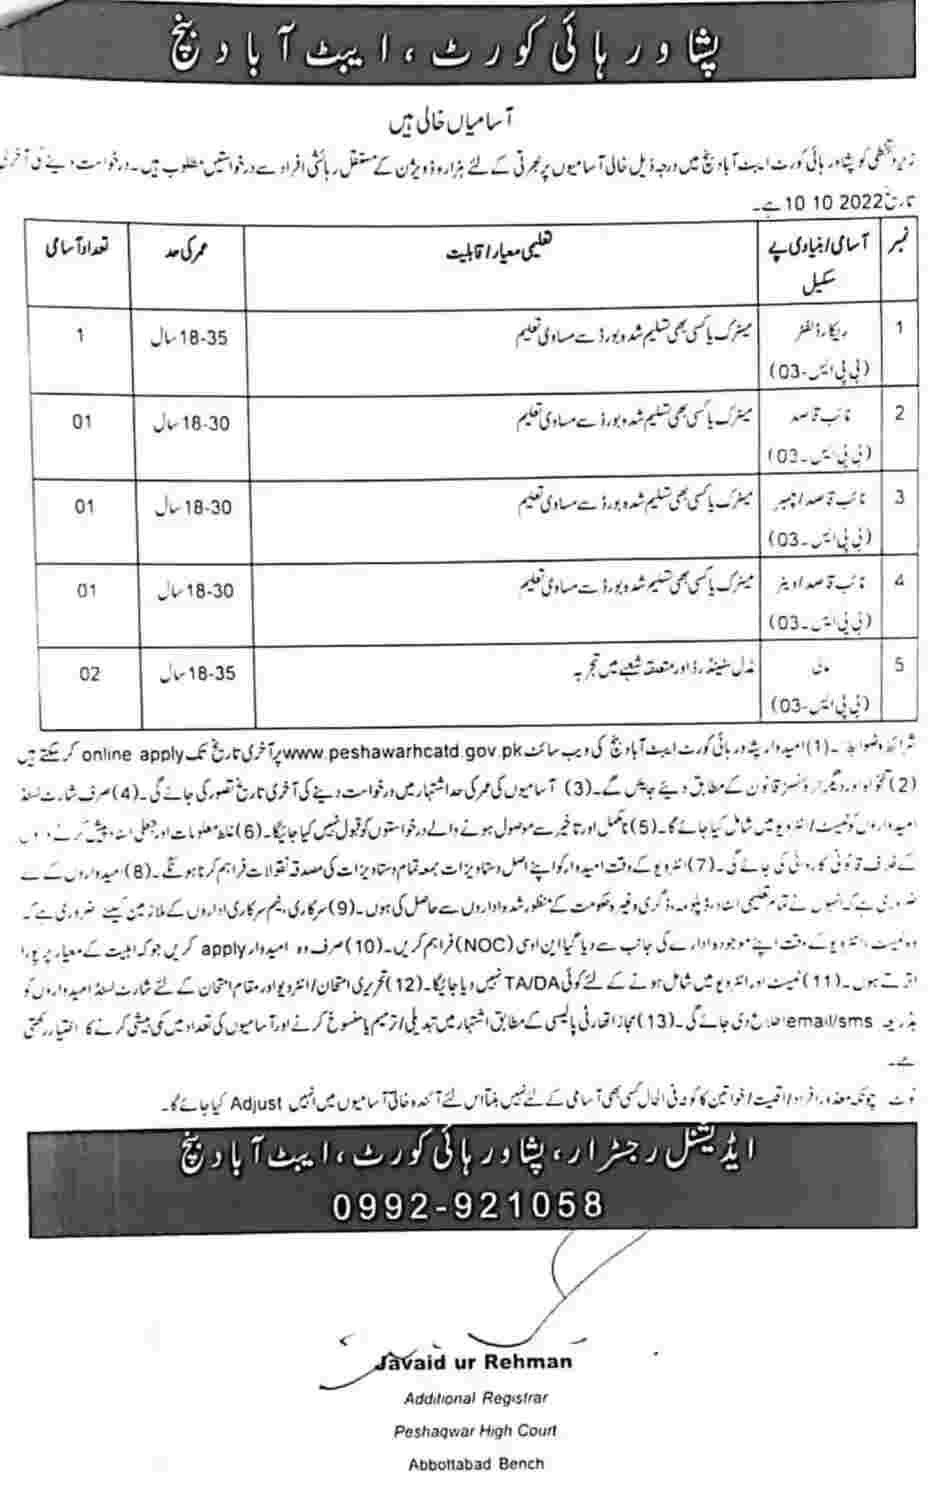 پشاور ہائی کورٹ، ایبٹ آباد بنچ
آسامیاں خالی ہیں
زیر دستخطی کو پشاور ہائی کورٹ ایبٹ آباد بنچ میں درجہ ذیل خالی آسامیوں پر بھرتی کے لئے ہزارہ ڈویژن کے مستقل رہائشی افراد سے درخواستیں مطلوب ہیں۔ درخواست دینے کی آخری
تاریخ 10 10 2022 ہے۔
نمبر آسامی/بنیادی پے تعلیمی معیار/قابلیت عمر کی حد تعداد آسامی
سکیل
1 ریکارڈ لفٹر میٹرک یا کسی بھی تسلیم شدہ بورڈ سے مساوی تعلیم 18-35 سال 1
(بی پی ایس-03)
2 نائب قاصد میٹرک یا کسی بھی تسلیم شدہ بورڈ سے مساوی تعلیم 18-30 سال 01
(بی پی ایس۔03)
3 نائب قاصد/چیمبر میٹرک یا کسی بھی تسلیم شدہ بورڈ سے مساوی تعلیم 18-30 سال 01
(بی پی ایس۔03)
4 نائب قاصد/ میٹرک یا کسی بھی تسلیم شدہ بورڈ سے مساوی تعلیم 18-30 سال 01
(بی پی ایس۔03)
5 مالی مڈل سٹینڈرڈ اور متعلقہ شعبے میں تجربہ 18-35 سال 02
(بی پی ایس-03)
شرائط و ضوابط۔ (1) امیدوار پشاور ہائی کورٹ ایبٹ آباد بنچ کی ویب سائٹ www.peshawarhcatd.gov.pk پر آخری تاریخ تک online apply کر سکتے ہیں
(2) تنخواہ اور دیگر الاؤنسز قانون کے مطابق دیئے جائیں گے۔ (3) آسامیوں کی عمر کی حد اشتہار میں درخواست دینے کی آخری تاریخ تصور کی جائے گی۔ (4) صرف شارٹ لسٹڈ
امیدواروں کو ٹیسٹ/انٹرویو میں شامل کیا جائے گا۔ (5) نامکمل اور تاخیر سے موصول ہونے والے درخواستوں کو قبول نہیں کیا جائیگا۔ (6) غلط معلومات اور جعلی اسناد پیش کرنے والوں
کے خلاف قانونی کاروائی کی جائے گی۔ (7) انٹرویو کے وقت امیدوار کو اپنے اصل دستاویزات بمعہ تمام دستاویزات کی مصدقہ نقولات فراہم کرنا ہونگے۔ (8) امیدواروں کے لئے
ضروری ہے کہ انہوں نے تمام تعلیمی اسناد، ڈپلومہ، ڈگری وغیرہ حکومت کے منظور شدہ اداروں سے حاصل کی ہوں۔ (9) سرکاری، نیم سرکاری اداروں کے ملازمین کیلئے ضروری ہے کہ
وہ ٹیسٹ، انٹرویو کے وقت اپنے موجودہ ادارے کی جانب سے دیا گیا این او سی (NOC) فراہم کریں۔ (10) صرف وہ امیدوار apply کریں جو کہ اہلیت کے معیار پر پورا
اترتے ہوں۔ (11) ٹیسٹ اور انٹرویو میں شامل ہونے کے لئے کوئی TA/DA نہیں دیا جائیگا۔ (12) تحریری امتحان/انٹرویو اور مقام امتحان کے لئے شارٹ لسٹڈ امیدواروں کو
بذریعہ email/sms اطلاع دی جائے گی۔ (13) مجاز اتھارٹی پالیسی کے مطابق اشتہار میں تبدیلی/ترمیم یا منسوخ کرنے اور آسامیوں کی تعداد میں کمی بیشی کرنے کا اختیار رکھتی
ہے۔
نوٹ چونکہ معذور افراد/اقلیت/خواتین کا کوٹہ فی الحال کسی بھی آسامی کے لئے نہیں بنتا اس لئے آئندہ خالی آسامیوں میں انہیں Adjust کیا جائے گا۔
ایڈیشنل رجسٹرار، پشاور ہائی کورٹ، ایبٹ آباد بنچ
0992-921058
Javaid ur Rehman
Additional Registrar
Peshaqwar High Court
Abbottabad Bench